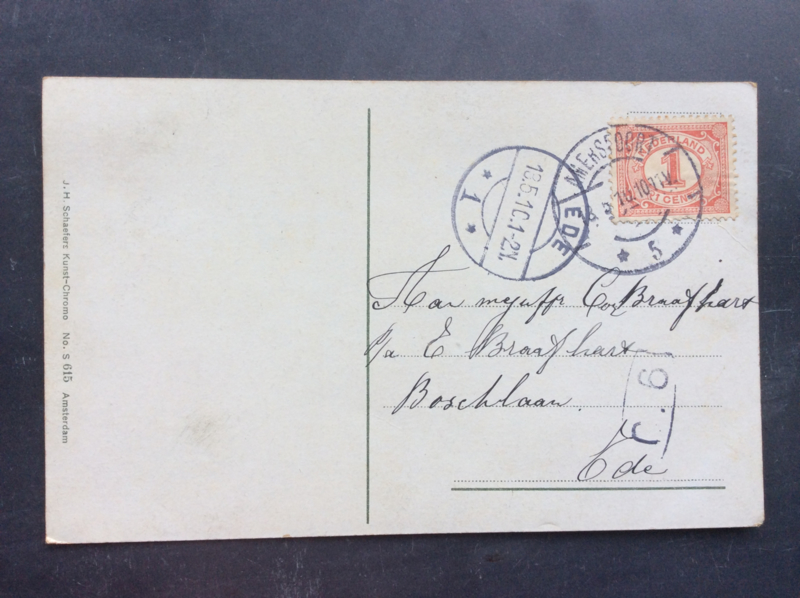 J. H. Schaefers Kunst-Chromo No. S 615 Amsterdam
1
18.5.10.1-2N.
EDE
AMERSFOORT
5
NEDERLAND
1
CENT
Aan mejuffr Co Braafhart
p/a E Braafhart
Boschlaan.
Ede
r. 6